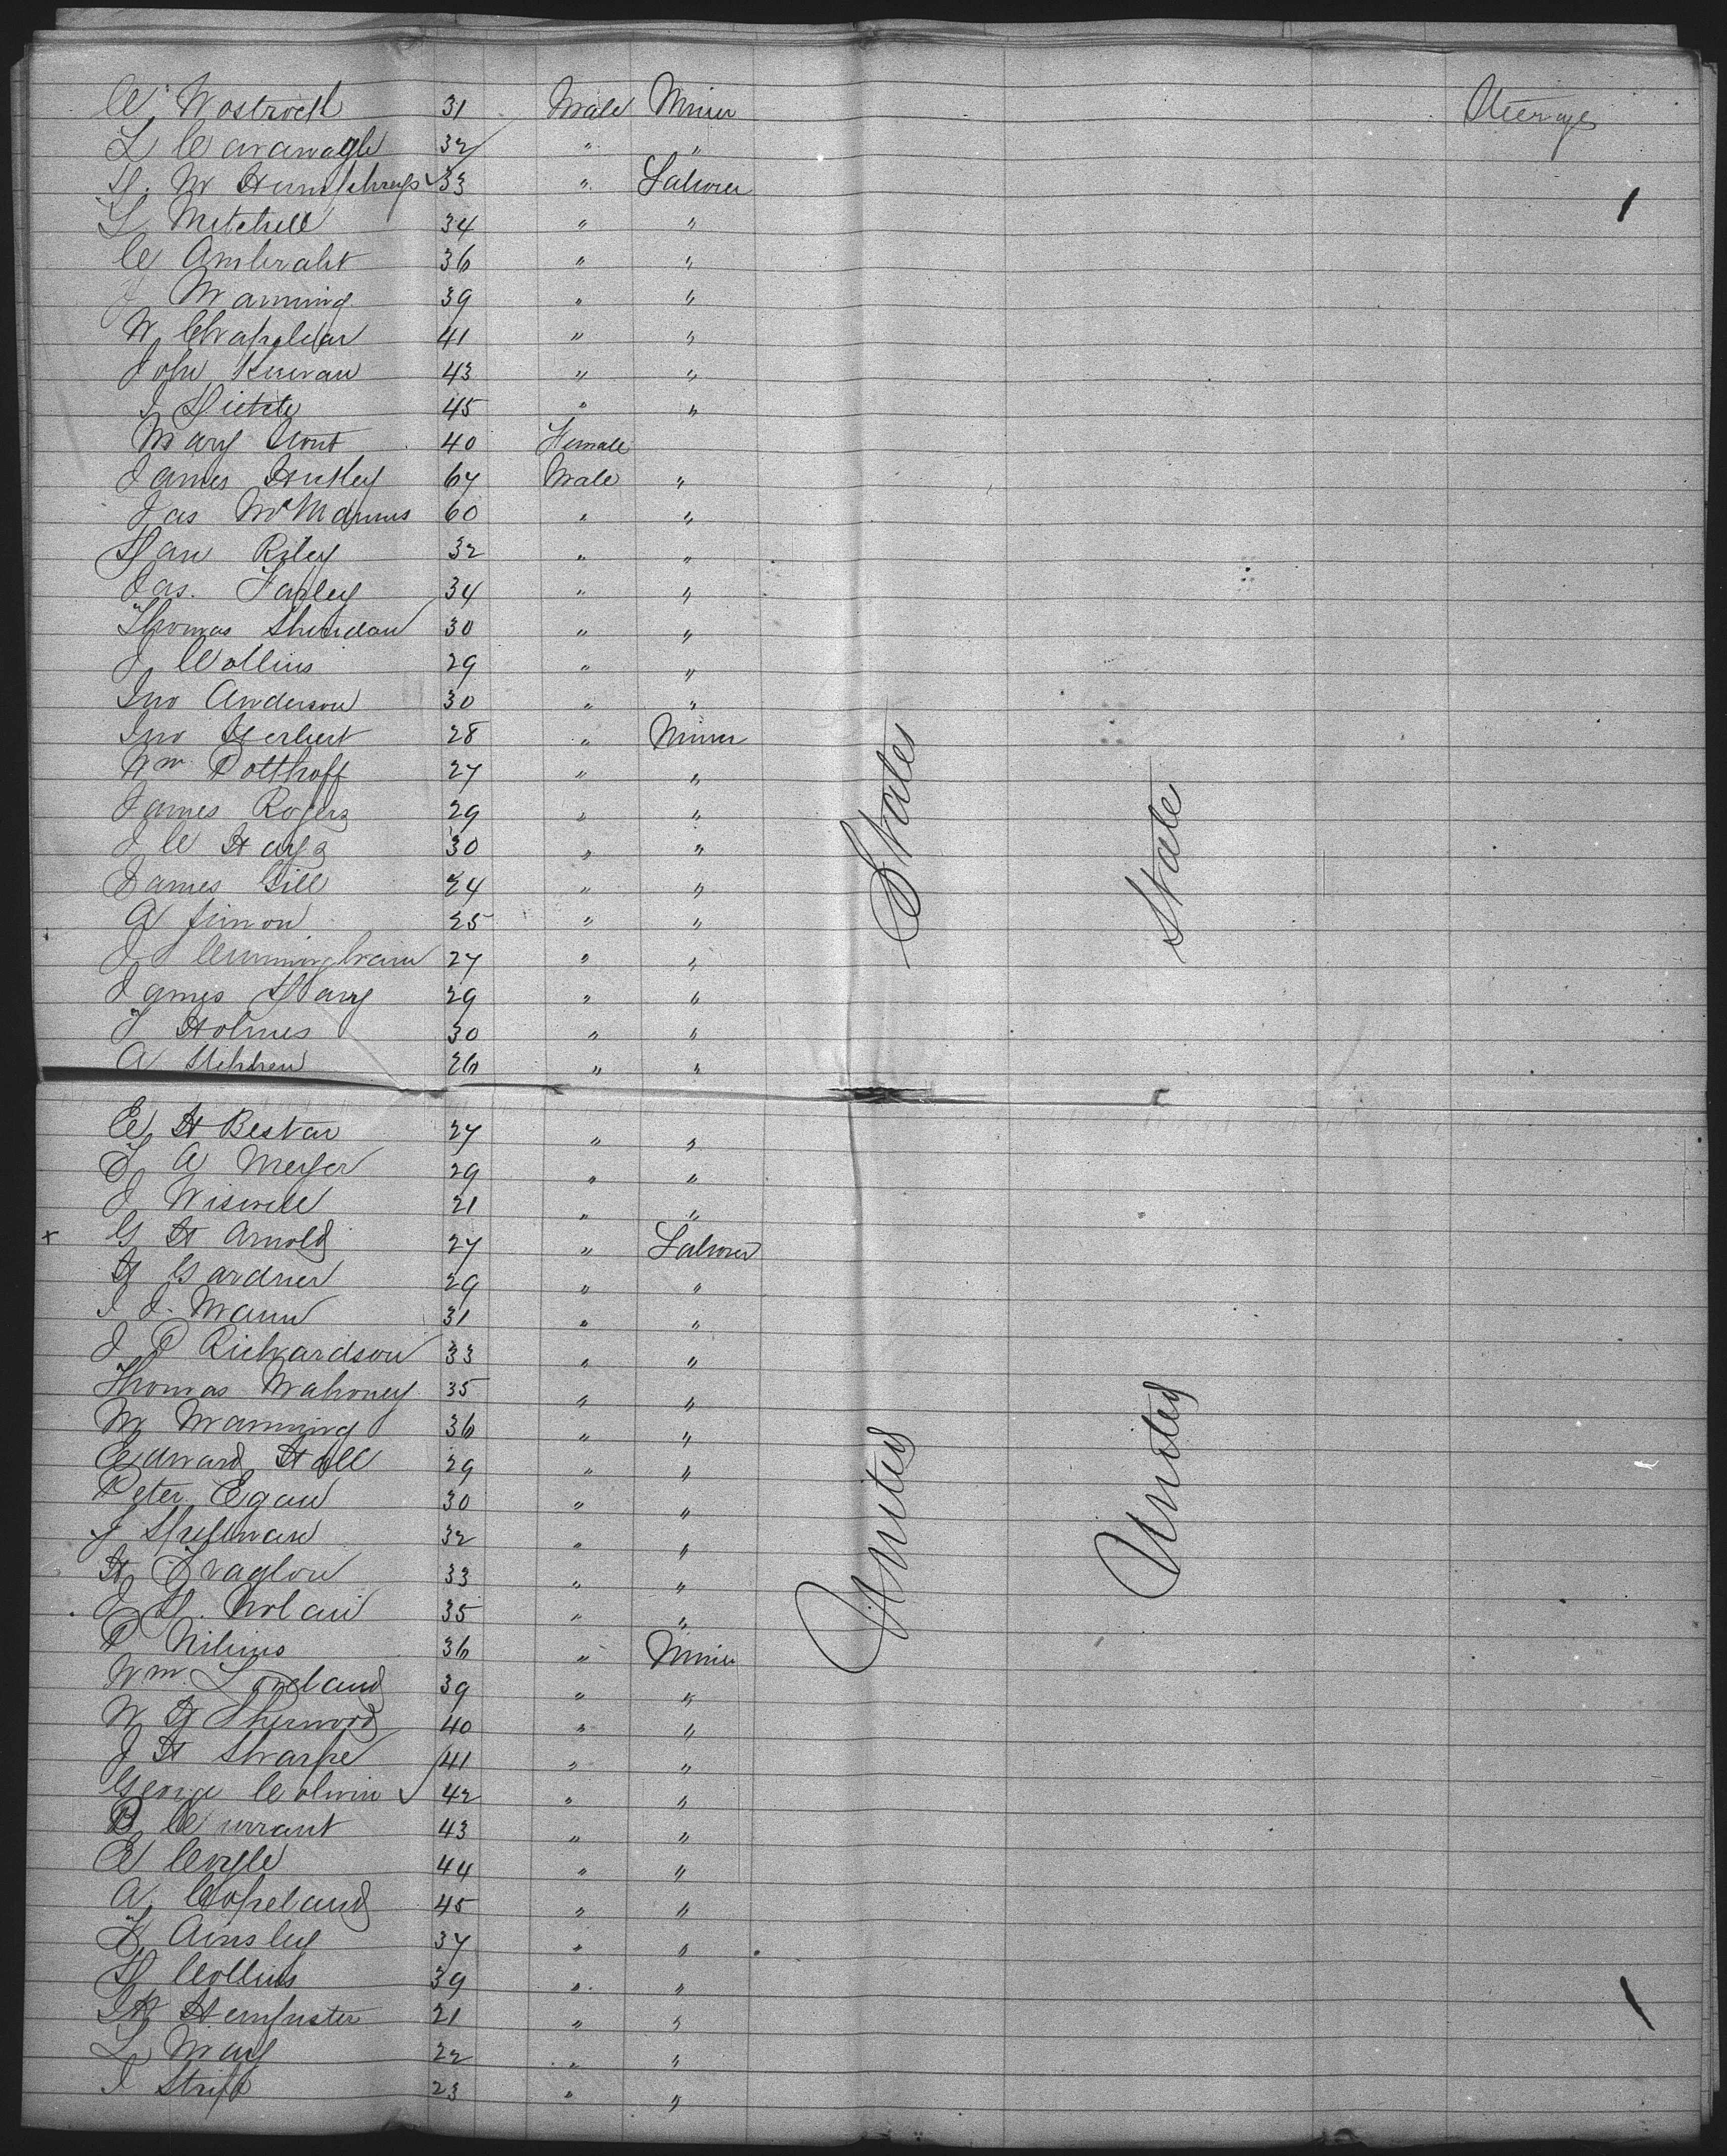 C. Wostrocth 31 Male Miner Steerage
L Cavanagh 32 " "
D. W Humphreys 33 " Laborer
L Mitchell 34 " "
C Ambraht 36 " "
J Manning 39 " "
W. Chapelear 41 " "
John Kirwan 43 " "
J Dickte 45 " "
Mary Hont 40 Female
James Hurley 67 Male "
Jas McManus 60 " "
Dan Riley 32 " "
Jas. Farley 34 " "
Thomas Sheridan 30 " "
J Collins 29 " "
Jno Anderson 30 " "
Jno Herbert 28 " Miner
Wm Potthoff 27 " "
James Rogers 29 " "
J C Hays 30 " "
James Gill 24 " "
A Simon 25 " "
J Cunningham 27 " "
James Davy 29 " "
J Holmes 30 " "
A Stephen 26 " "
C H Bestar 27 " "
L A Meyer 29 " "
J Wiswell 21 " "
x G H Arnold 27 " Laborer
H Gardner 29 " "
I J. Mann 31 " "
J P Richardson 33 " "
Thomas Mahoney 35 " "
M Manning 36 " "
Edward Hall 29 " "
Peter Egan 30 " "
J Spellman 32 " "
H 33 " "
J D. Nolan 35 " "
P 36 " Miner
Wm. Loveland 39 " "
W H Sherwood 40 " "
J H Sharpe 41 " "
George Colwin 42 " "
B Currant 43 " "
E Coyle 44 " "
A. Copeland 45 " "
F Ainsley 37 " "
D Collins 39 " "
21 " "
L May 22 " "
J Stripp 23 " "
United States
United State